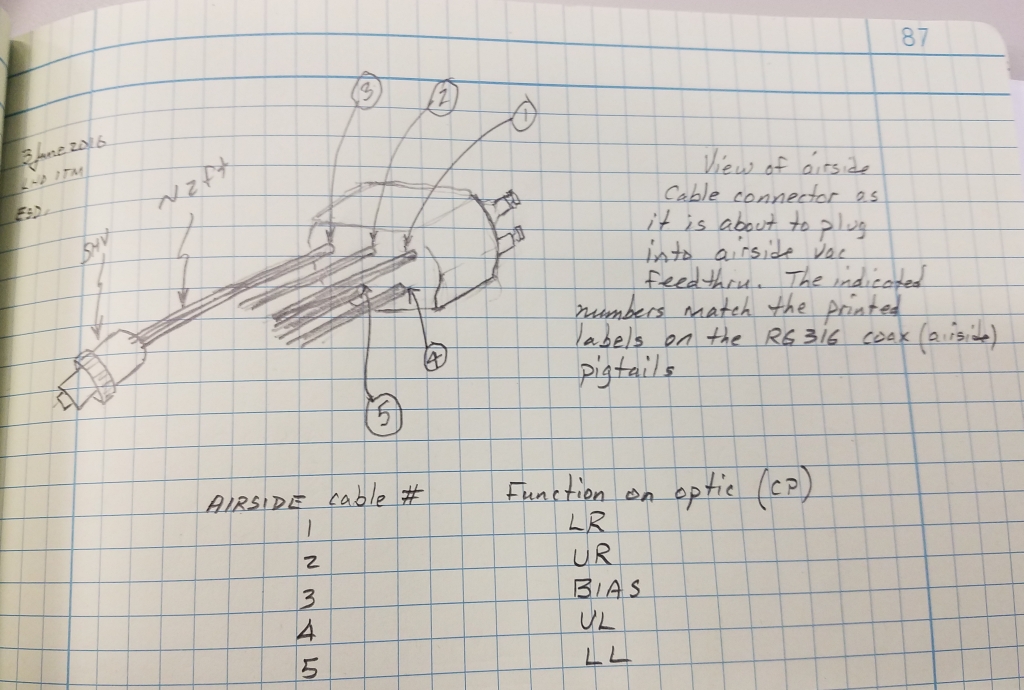 87
3 June 2016
ITM
ESD.
SHV
~ 2 ft
3
2
1
4
5
View of airside
Cable connector as
it is about to plug
into airside vac
feedthru. The indicated
numbers match the printed
labels on the RG 316 coax (airside)
pigtails
AIRSIDE cable # Function on optic (CP)
1 LR
2 UR
3 BIAS
4 UL
5 LL